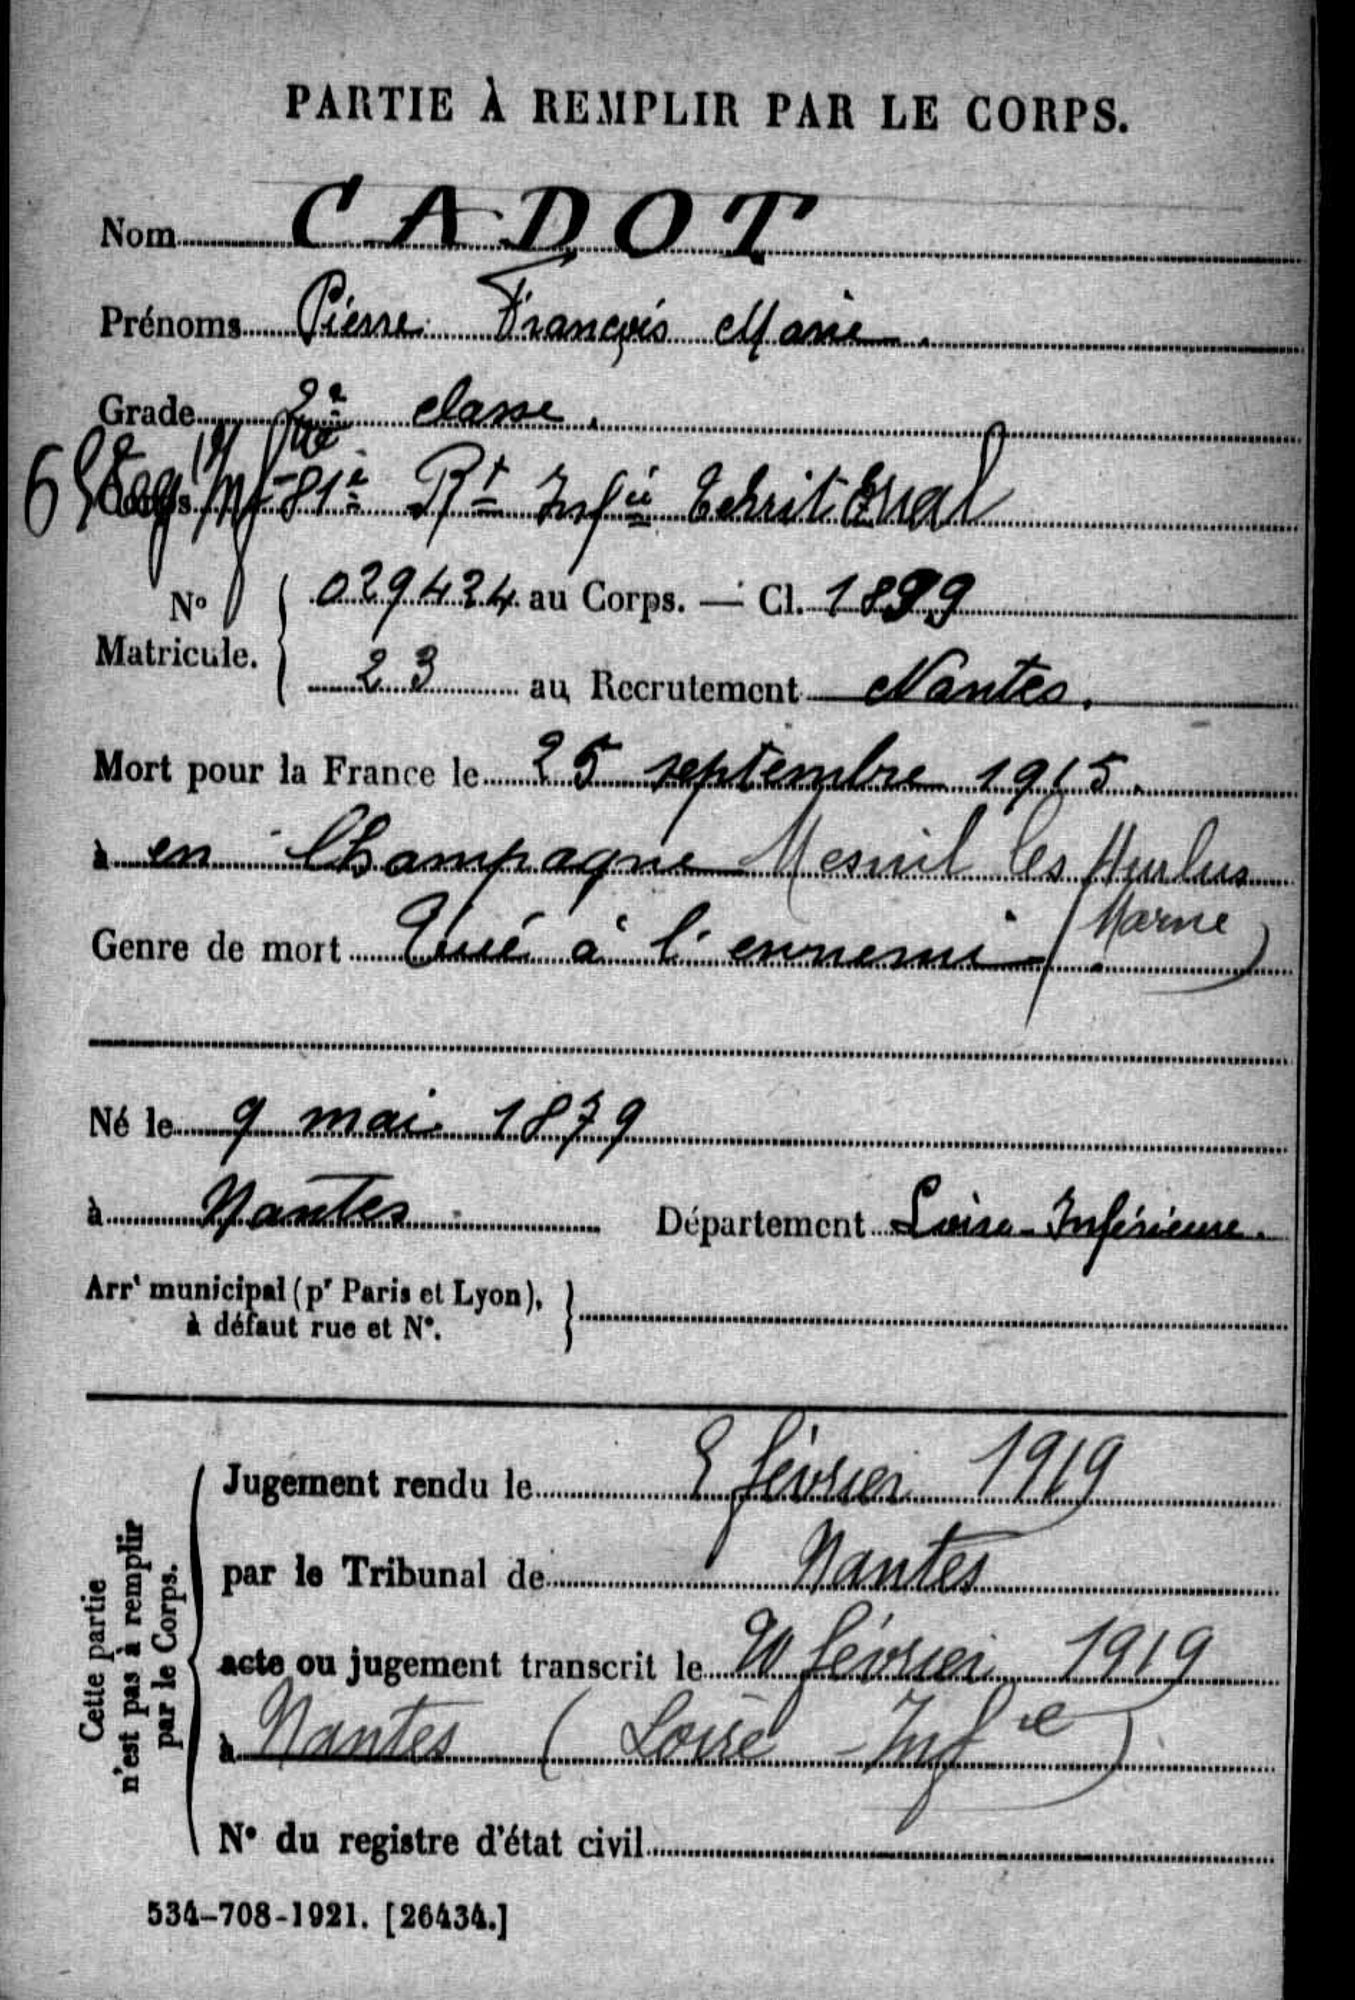 PARTIE À REMPLIR PAR LE CORPS.
Nom CADOT
Prénoms Pierre François Marie.
Grade 2e classe.
Corps 81e Rt Infie Territorial
No Matricule. 029424 au Corps. — Cl. 1899
23 au Recrutement Nantes.
Mort pour la France le 25 septembre 1915.
à en Champagne Mesnil les Hurlus
(Marne)
Genre de mort Tué à l'ennemi
Né le 9 mai 1879
à Nantes Département Loire-Inférieure.
Arrt municipal (pr Paris et Lyon),
à défaut rue et No.
Cette partie
n'est pas à remplir
par le Corps.
Jugement rendu le février 1919
par le Tribunal de Nantes
acte ou jugement transcrit le 20 février 1919
à Nantes (Loire-Infre)
No du registre d'état civil
534-708-1921. [26434.]